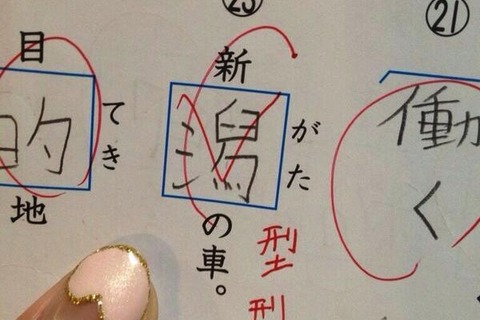 ㉑
働く
新潟の車。
がた
型
目的地
てき